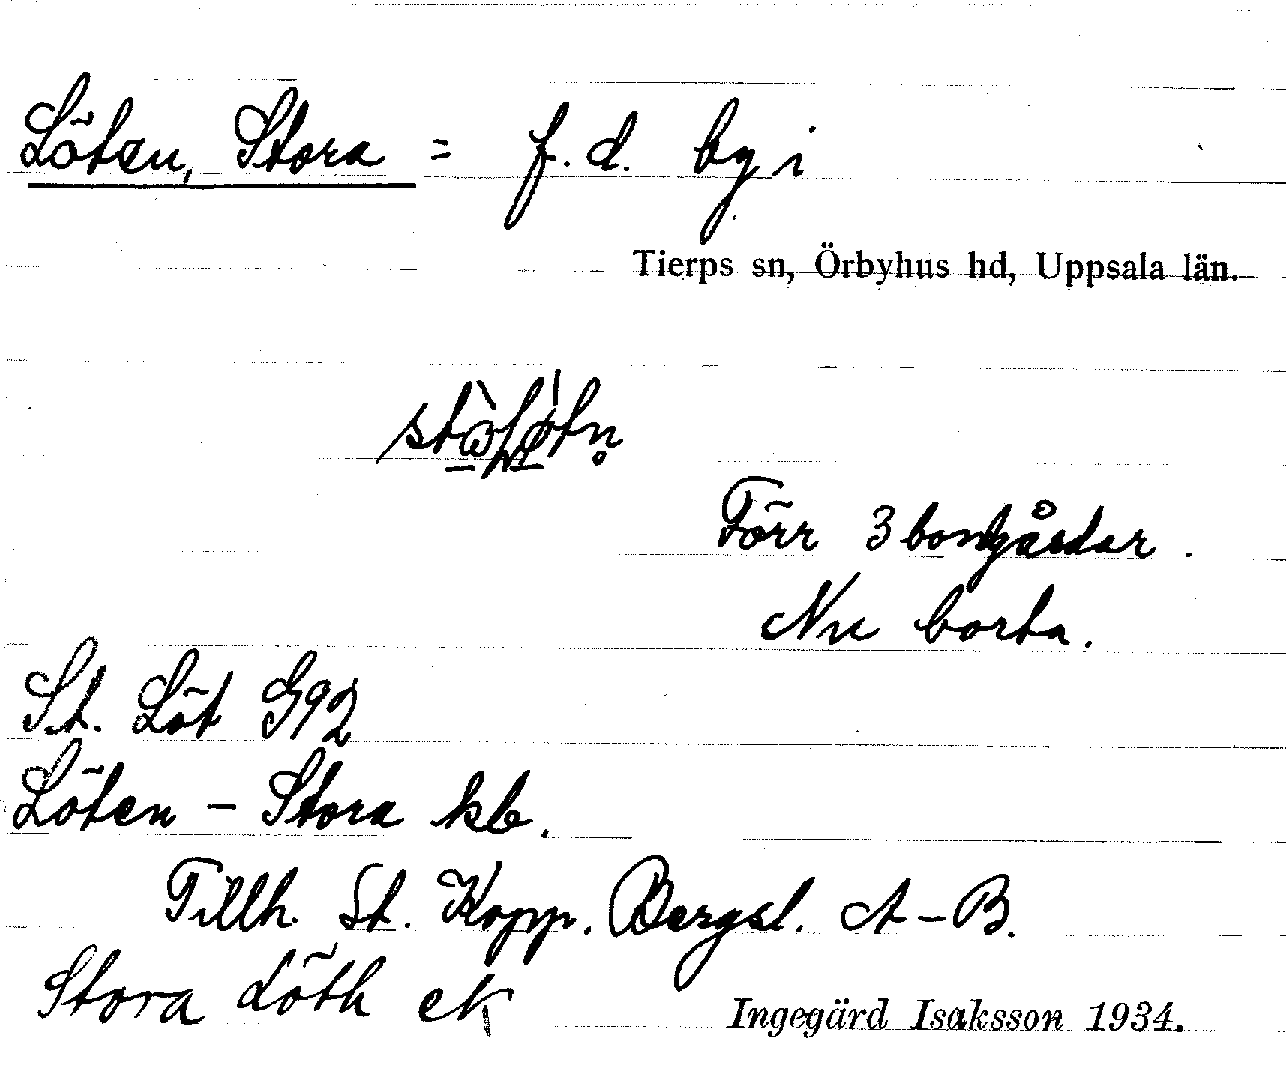 Löten, Stora = f. d. by i
Tierps sn, Örbyhus hd, Uppsala län.
Förr 3 bondgårdar.
Nu borta.
St. Löt G92
Löten - Stora kb.
Tillh. St. Kopp. Bergsl. A-B.
Stora Löth ek
Ingegärd Isaksson 1934.